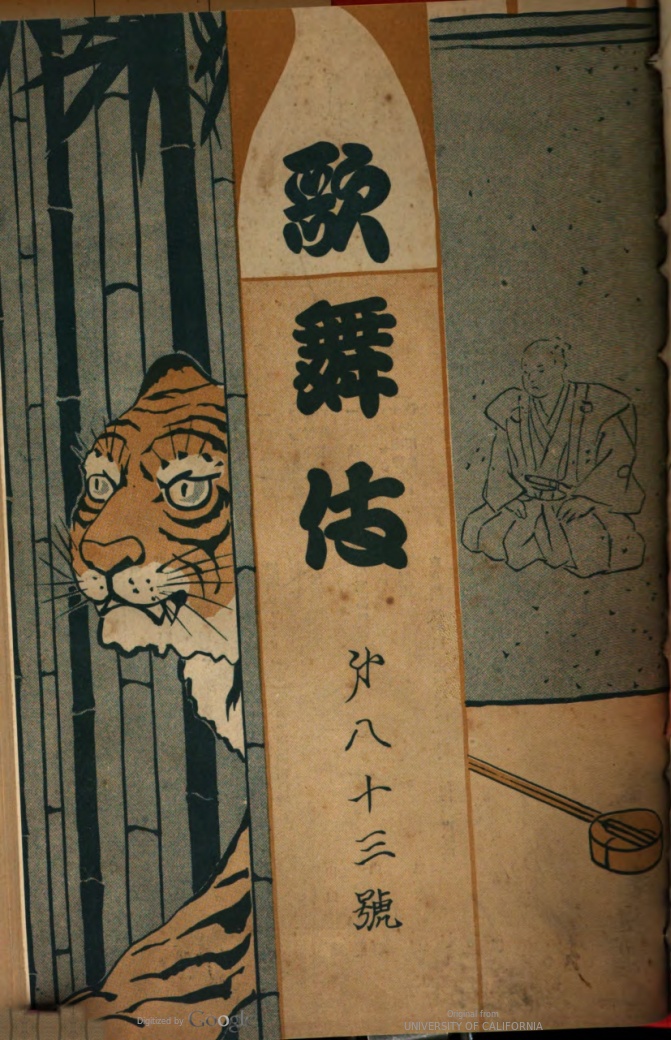 歌舞伎
第八十三號
Digitized by Google
Original from
UNIVERSITY OF CALIFORNIA